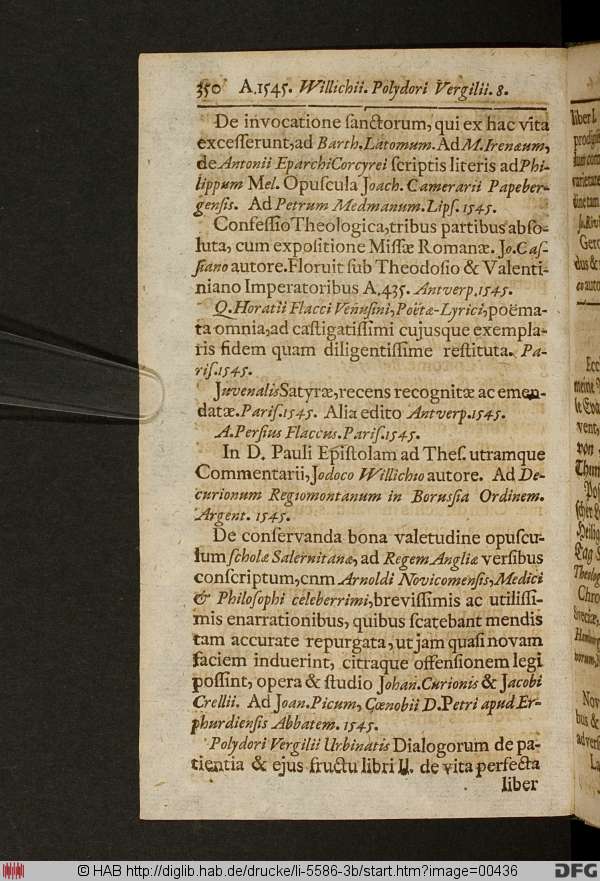 350 A.1545. Willichii. Polydori Vergilii. 8.
De invocatione ſanctorum, qui ex hac vita
exceſſerunt,ad Barth.Latomum. Ad M.Irenæum,
de Antonii Eparchi Corcyrei ſcriptis literis ad Phi-
lippum Mel. Opuſcula Joach. Camerarii Papeber-
genſis. Ad Petrum Medmanum. Lipſ. 1545.
Confeſſio Theologica, tribus partibus abſo-
luta, cum expoſitione Miſſæ Romanæ. Jo.Caſ-
ſiano autore. Floruit ſub Theodoſio & Valenti-
niano Imperatoribus A.435. Antverp.1545.
Q.Horatii Flacci Venuſini,Poëtæ-Lyrici,poëma-
ta omnia,ad caſtigatiſſimi cujusque exempla-
ris fidem quam diligentiſſime reſtituta. Pa-
riſ.1545.
Juvenalis Satyræ,recens recognitæ ac emen-
datæ. Pariſ.1545. Alia edito Antverp.1545.
A.Perſius Flaccus. Pariſ.1545.
In D. Pauli Epiſtolam ad Theſ. utramque
Commentarii, Jodoco Willichio autore. Ad De-
curionum Regiomontanum in Borusſia Ordinem.
Argent. 1545.
De conſervanda bona valetudine opuſcu-
lum ſcholæ Salernitanæ, ad Regem Angliæ verſibus
conſcriptum,cnm Arnoldi Novicomenſis,Medici
& Philoſophi celeberrimi,breviſſimis ac utiliſſi-
mis enarrationibus, quibus ſcatebant mendis
tam accurate repurgata, ut jam quaſi novam
faciem induerint, citraque offenſionem legi
poſſint, opera & ſtudio Johan.Curionis & Jacobi
Crellii. Ad Joan.Picum, Cœnobii D.Petri apud Er-
phurdienſis Abbatem. 1545.
Polydori Vergilii Urbinatis Dialogorum de pa-
tientia & ejus fructu libri II. de vita perfecta
liber
liber I.
prodigiis
varietate
Ecc
meine
vent,
von
Thum
Poſ
Heilig
Tag
Theolog
Chro
Nov
bus &
adverſ
© HAB http://diglib.hab.de/drucke/li-5586-3b/start.htm?image=00436
DFG